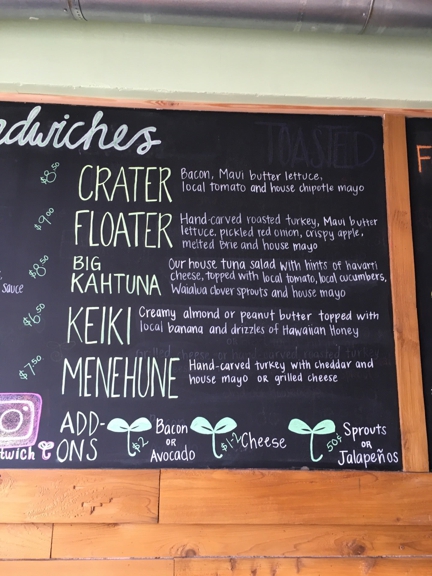 dwiches
TOASTED
F
$8.50 CRATER Bacon, Maui butter lettuce,
local tomato and house chipotle mayo
$9.00 FLOATER Hand-carved roasted turkey, Maui butter
lettuce, pickled red onion, crispy apple,
melted brie and house mayo
$8.50 BIG KAHTUNA Our house tuna salad with hints of havarti
cheese, topped with local tomato, local cucumbers,
Waialua clover sprouts and house mayo
sauce
$6.50 KEIKI Creamy almond or peanut butter topped with
local banana and drizzles of Hawaiian Honey
$7.50 MENEHUNE Hand-carved turkey with cheddar and
house mayo or grilled cheese
twich
ADD-
ONS
$2 Bacon
OR
Avocado
$1-2 Cheese
50¢ Sprouts
OR
Jalapeños